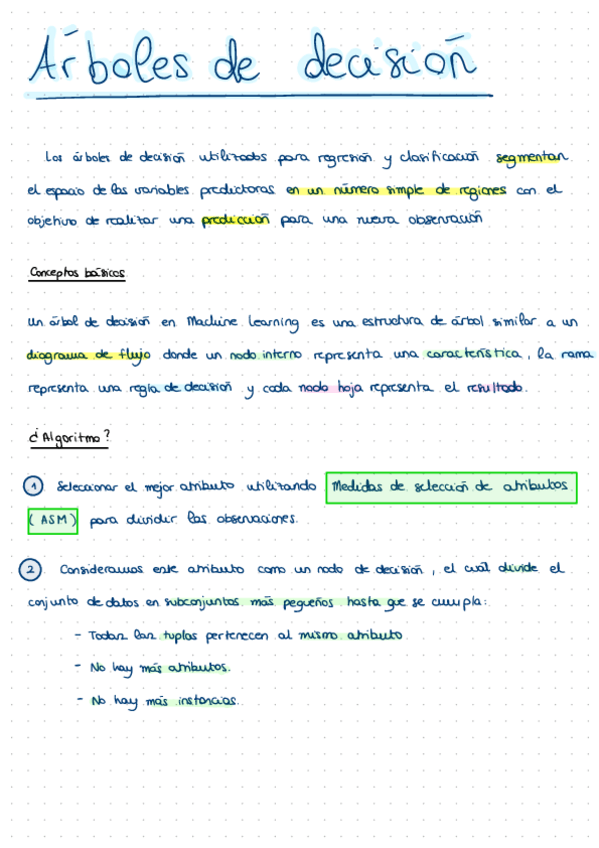 Árboles de decisión
Los árboles de decisión utilizados para regresión y clasificación segmentan
el espacio de las variables predictoras en un número simple de regiones con el
objetivo de realizar una predicción para una nueva observación
Conceptos básicos
Un árbol de decisión en Machine Learning es una estructura de árbol similar a un
diagrama de flujo donde un nodo interno representa una característica, la rama
representa una regla de decisión y cada nodo hoja representa el resultado.
¿Algoritmo?
1 Seleccionar el mejor atributo utilizando Medidas de selección de atributos
(ASM) para dividir las observaciones.
2 Consideramos este atributo como un nodo de decisión, el cuál divide el
conjunto de datos en subconjuntos más pequeños hasta que se cumpla:
- Todas las tuplas pertenecen al mismo atributo
- No hay más atributos.
- No hay más instancias.